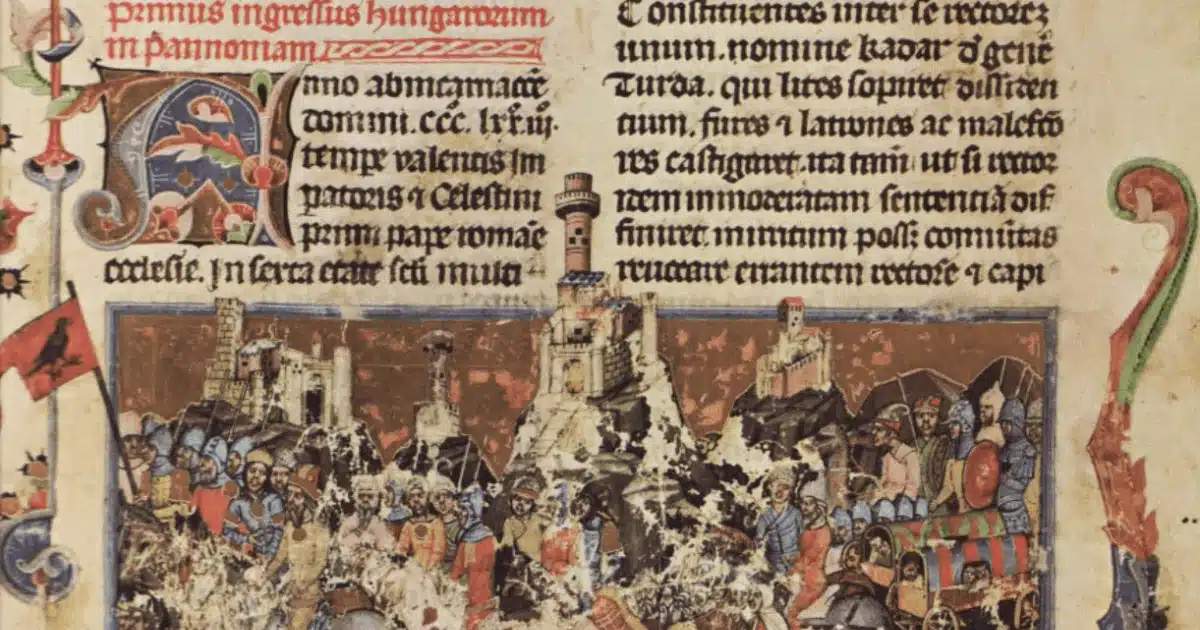 primus ingressus hungarorum
in pannoniam
Anno ab incarnacōe
domini. ccc. lxx. iii.
tempe valentis Im
patoris ⁊ Celestini
primi pape romāe
ecclesie. In sexta etate scłi multi
Constituentes inter se rectorē
unum. nomine kadar d' genē
Turda. qui lites sopiret dissiden
cium. fures ⁊ latrones ac malefco
res castigaret. ita tam ut si rector
idem inmoderatam sentenciā dif
finiret. inirritum poss; com̄uitas
revocare errantem rectorē ⁊ capi